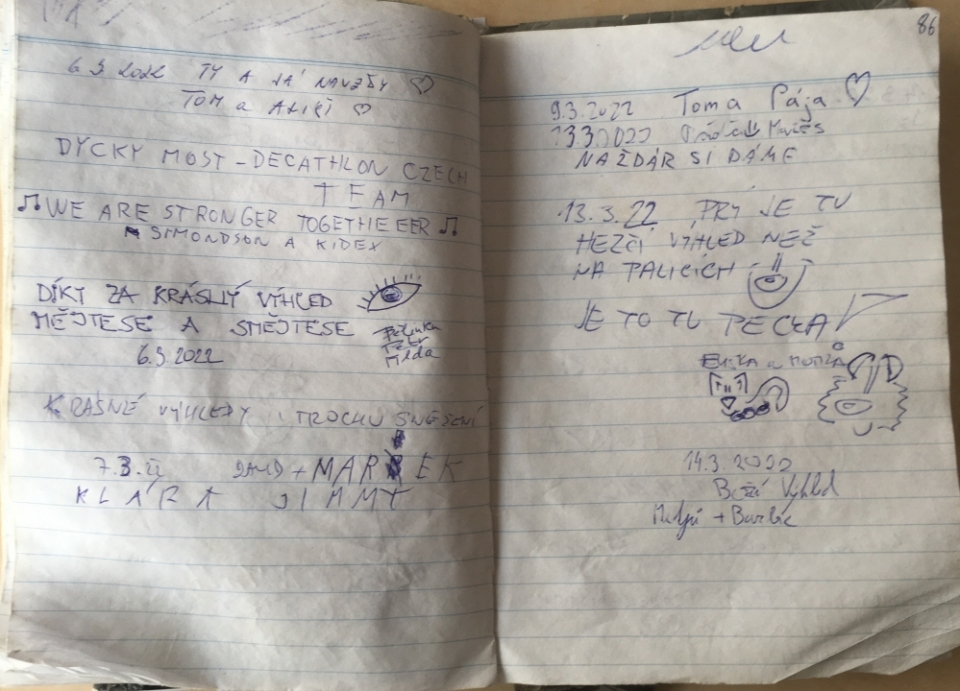 6.3 2022 TY A JÁ NAVŽDY
TOM a
DYCKY MOST - DECATHLON CZECH
TEAM
WE ARE STRONGER TOGETHEEER
SIMONDSON A KIDEX
DÍKY ZA KRÁSNÝ VÝHLED
MĚJTESE A SMĚJTESE
Peťulka
Peter
Milda
6.3 2022
KRÁSNÉ VÝHLEDY I TROCHU SNĚŽENÍ
7.3. DAVID + MAREK
KLÁRA JIMMY
86
9.3.2022 Tom a Pája
NAŽDÁR SI DÁME
13.3.22 PRÝ JE TU
HEZČÍ VÝHLED NEŽ
NA PALICÍCH
JE TO TU PECKA
14.3.2022
Boží Výhled